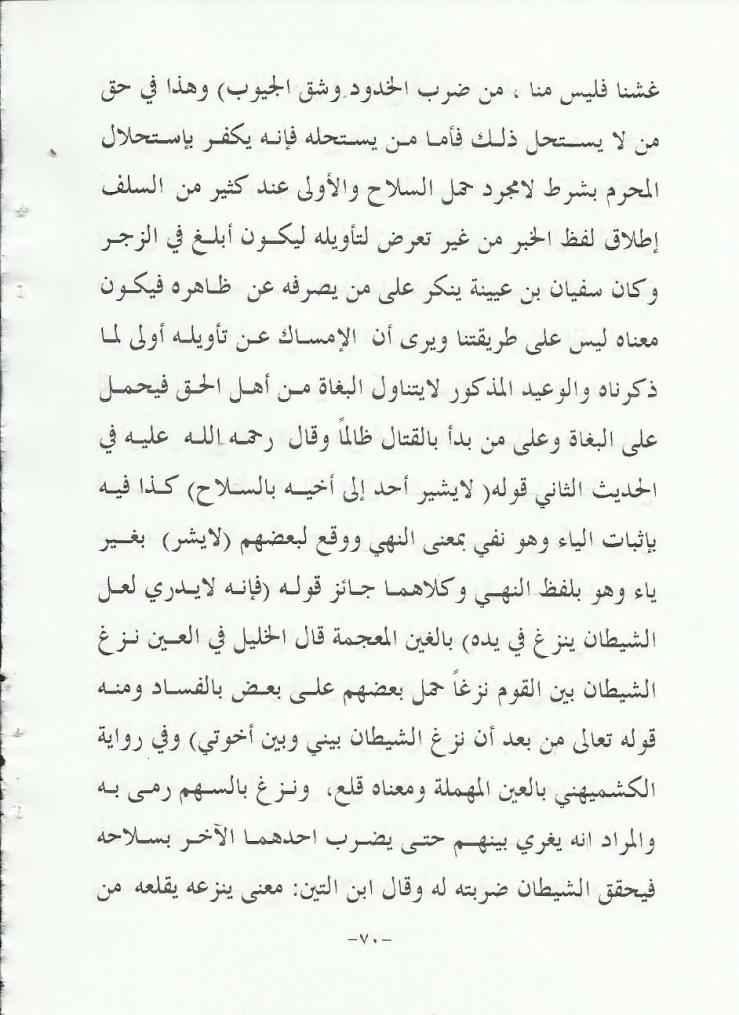 غشنا فليس منا ، من ضرب الخدود وشق الجيوب) وهذا في حق
من لا يستحل ذلك فأما من يستحله فإنه يكفر بإستحلال
المحرم بشرط لامجرد حمل السلاح والأولى عند كثير من السلف
إطلاق لفظ الخبر من غير تعرض لتأويله ليكون أبلغ في الزجر
وكان سفيان بن عيينة ينكر على من يصرفه عن ظاهره فيكون
معناه ليس على طريقتنا ويرى أن الإمساك عن تأويله أولى لما
ذكرناه والوعيد المذكور لايتناول البغاة من أهل الحق فيحمل
على البغاة وعلى من بدأ بالقتال ظالماً وقال رحمه الله عليه في
الحديث الثاني قوله( لايشير أحد إلى أخيه بالسلاح) كذا فيه
بإثبات الياء وهو نفي بمعنى النهي ووقع لبعضهم (لايشر) بغير
ياء وهو بلفظ النهي وكلاهما جائز قوله (فإنه لايدري لعل
الشيطان ينزغ في يده) بالغين المعجمة قال الخليل في العين نزغ
الشيطان بين القوم نزغاً حمل بعضهم على بعض بالفساد ومنه
قوله تعالى من بعد أن نزغ الشيطان بيني وبين أخوتي) وفي رواية
الكشميهني بالعين المهملة ومعناه قلع، ونزغ بالسهم رمى به
والمراد انه يغري بينهم حتى يضرب احدهما الآخر بسلاحه
فيحقق الشيطان ضربته له وقال ابن التين: معنى ينزعه يقلعه من
-٧٠-